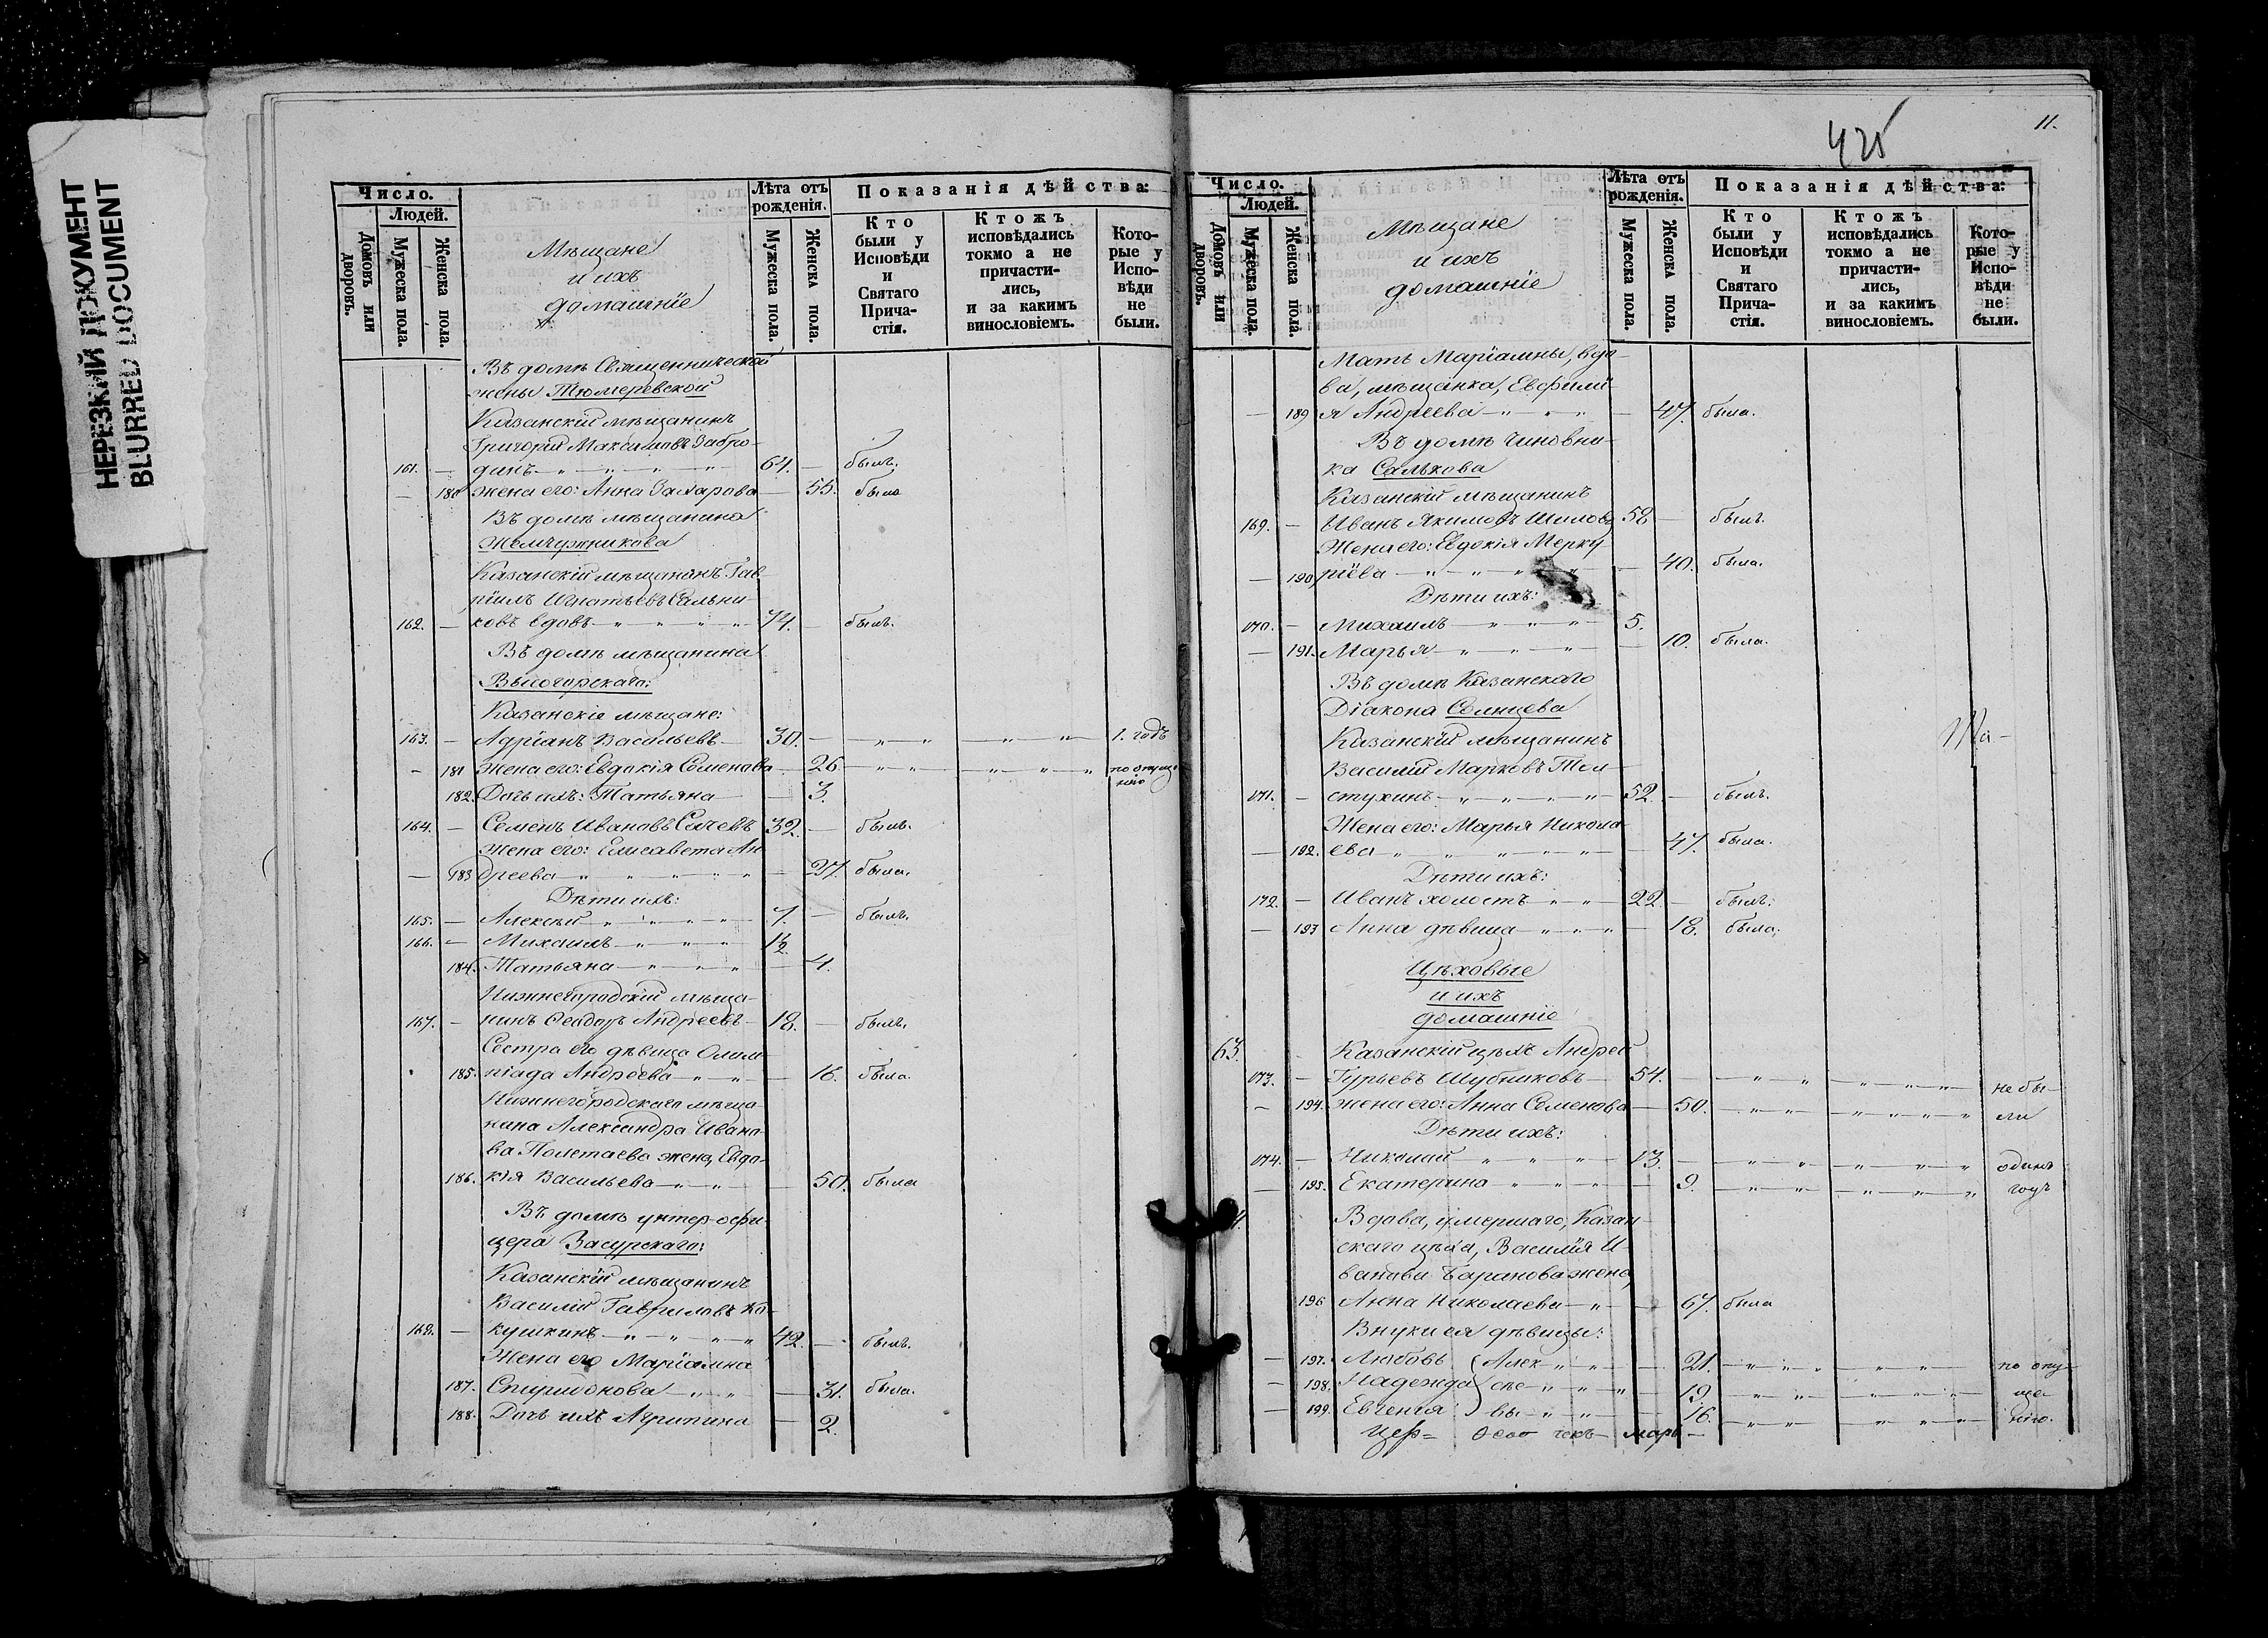 НЕРЕЗКИЙ ДОКУМЕНТ
BLURRED DOCUMENT
Число.
Людей.
Домовъ или дворовъ.
Мужеска пола.
Женска пола.
Мѣщане
и ихъ
домашніе
Лѣта отъ рожденія.
Мужеска пола.
Женска пола.
Показанія дѣйства:
Кто были у Исповѣди и Святаго Прича-стія.
Ктожъ исповѣдались токмо а не причасти-лись, и за какимъ винословіемъ.
Кото-рые у Испо-вѣди не были.
Въ домѣ Священнической
жены Тюмеревской
Казанскій мѣщанинъ
Григорій Максимовъ Забро-
161. — динъ — 64. — былъ.
— 180 жена его: Анна Захарова — 55. была
Въ домѣ мѣщанина
Жемчужникова
Казанскій мѣщанинъ Гав-
ріилъ Игнатьевъ Сальни-
162. — ковъ вдовъ — 74. — былъ.
Въ домѣ мѣщанина
Высогорскаго:
Казанскіе мѣщане:
163. — Адріанъ Васильевъ — 30. — 1. годъ
— 181 жена его: Евдокія Семенова — 26 по опуще-
нію
182. Дочь ихъ: Татьяна — 3.
164. — Семенъ Ивановъ Сычевъ 32. — былъ.
жена его: Елисавета Ан-
— 183 дреева — 27. была.
Дѣти ихъ:
165. — Алексѣй — 7. — былъ.
166. — Михаилъ — 1/2
184. Татьяна — 4.
Нижнегородскій мѣща-
167. — нинъ Ѳеодоръ Андреевъ — 18. — былъ.
Сестра его дѣвица Олим-
185. піада Андреева — 16. была.
Нижнегородскаго мѣща-
нина Александра Ивано-
ва Полетаева жена, Евдо-
186. кія Васильева — 50. была
Въ домѣ унтер-офи-
цера Засурскаго:
Казанскій мѣщанинъ
Василій Гавриловъ Ко-
168. — кушкинъ — 42. — былъ.
Жена его Маріамна
187. Спиридонова — 31. была.
188. Дочь ихъ Агрипина — 2.
425
11.
Число.
Людей.
Домовъ или дворовъ.
Мужеска пола.
Женска пола.
Мѣщане
и ихъ
домашніе
Лѣта отъ рожденія.
Мужеска пола.
Женска пола.
Показанія дѣйства:
Кто были у Исповѣди и Святаго Прича-стія.
Ктожъ исповѣдались токмо а не причасти-лись, и за какимъ винословіемъ.
Кото-рые у Испо-вѣди не были.
Мать Маріамны, вдо-
ва, мѣщанка, Евфимі-
— 189 я Андреева — 47. была.
Въ домѣ чиновни-
ка Салькова
Казанскій мѣщанинъ
169. — Иванъ Якимовъ Шиловъ 58 — былъ.
Жена его: Евдокія Мерку-
— 190 ріева — 40. была.
Дѣти ихъ:
170. — Михаилъ — 5.
— 191. Марья — 10. была.
Въ домѣ Казанскаго
Діакона Солнцева
Казанскій мѣщанинъ
Василій Марковъ Тол-
171. — стухинъ — 52. — былъ.
Жена его: Марья Никола-
— 192. ева — 47. была.
Дѣти ихъ:
172. — Иванъ холостъ — 22 — былъ.
— 193 Анна дѣвица — 18. была.
Цѣховые
и ихъ
домашніе
63. Казанскій цѣхъ Андрей
173. — Гурьевъ Шубниковъ — 54. — не бы-
— 194. жена его: Анна Семенова — 50. — ли
Дѣти ихъ:
174. — Николай — 13. — одинъ
— 195. Екатерина — 9. — годъ
4. Вдова, умершаго, Казан-
скаго цѣха, Василія И-
ванова Баранова жена,
196 Анна Николаева — 67. была
Внуки ея дѣвицы:
— 197. Любовь (Алек — 21. — по опу-
— 198. Надежда сѣе — 19. — ще-
— 199. Евгенія вы — 16. — нію.